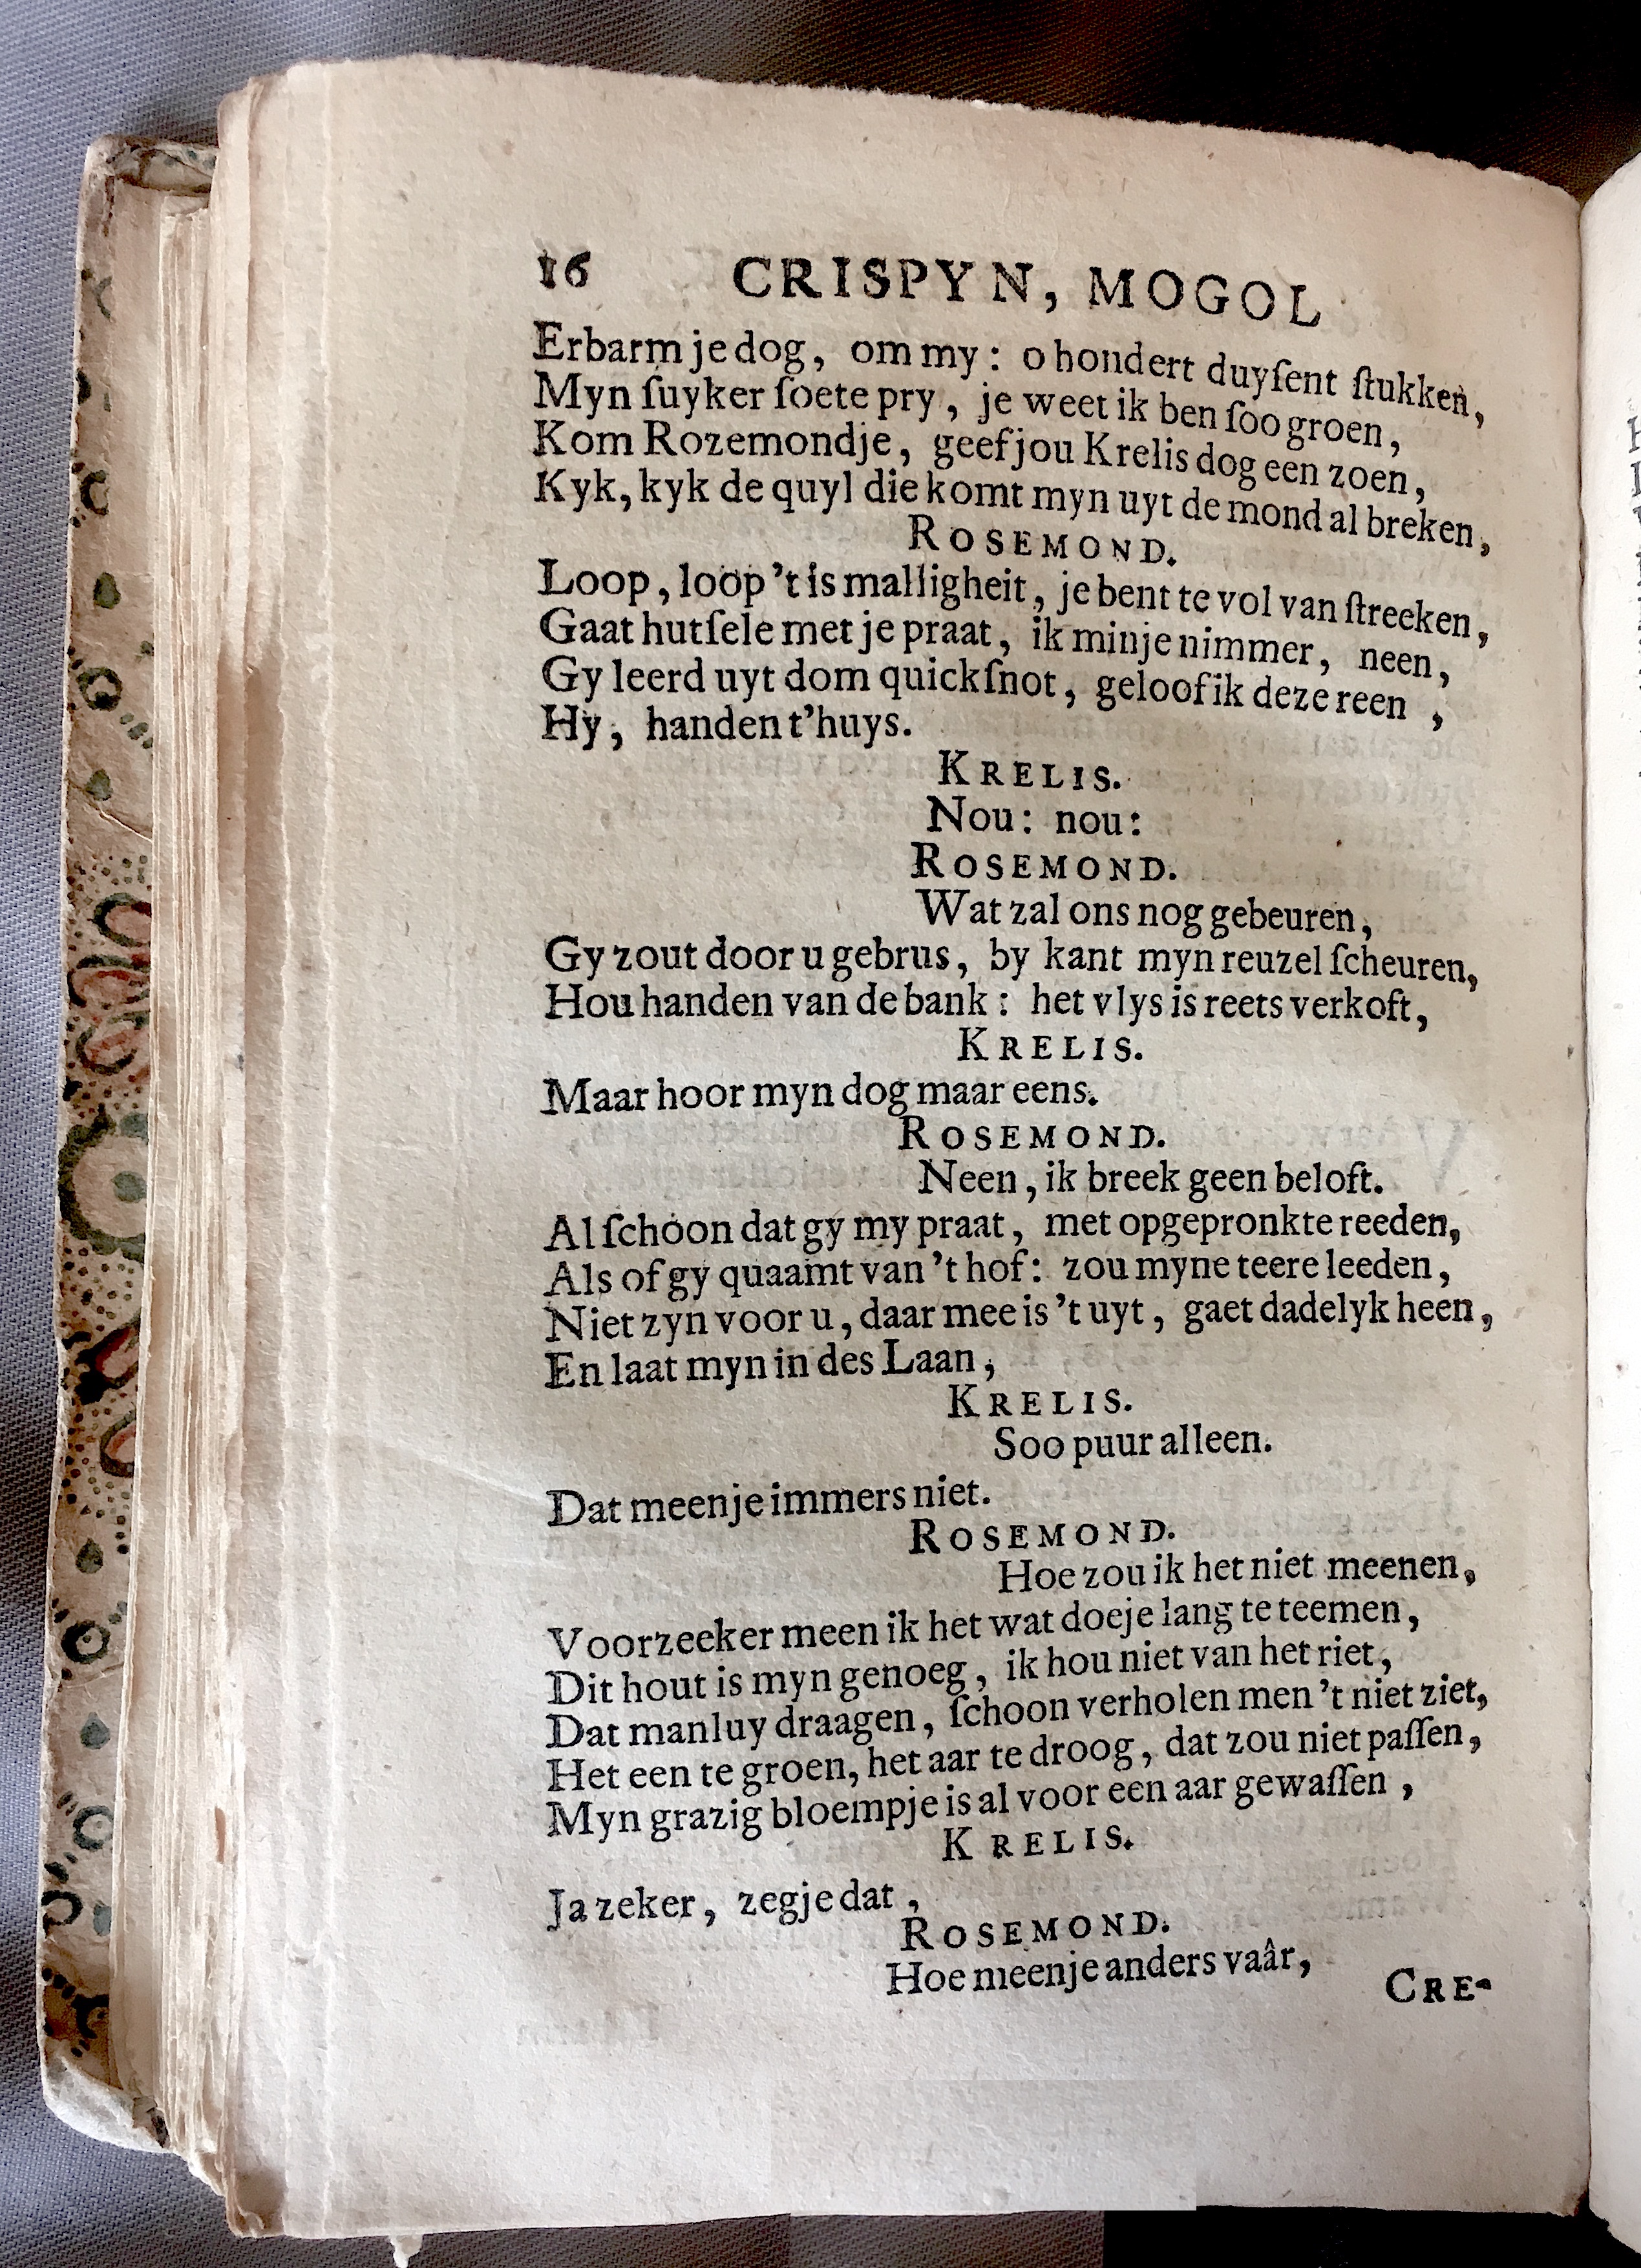 16 CRISPYN, MOGOL
Erbarm je dog, om my: o hondert duyſent ſtukken,
Myn ſuyker ſoete pry, je weet ik ben ſoo groen,
Kom Rozemondje, geef jou Krelis dog een zoen,
Kyk, kyk de quyl die komt myn uyt de mond al breken,
ROSEMOND.
Loop, loop 't is malligheit, je bent te vol van ſtreeken,
Gaat hutſele met je praat, ik min je nimmer, neen,
Gy leerd uyt dom quickſnot, geloof ik deze reen,
Hy, handen t'huys.
KRELIS.
Nou: nou:
ROSEMOND.
Wat zal ons nog gebeuren,
Gy zout door u gebrus, by kant myn reuzel ſcheuren,
Hou handen van de bank: het vlys is reets verkoft,
KRELIS.
Maar hoor myn dog maar eens.
ROSEMOND.
Neen, ik breek geen beloft.
Al ſchoon dat gy my praat, met opgepronkte reeden,
Als of gy quaamt van 't hof: zou myne teere leeden,
Niet zyn voor u, daar mee is 't uyt, gaet dadelyk heen,
En laat myn in des Laan,
KRELIS.
Soo puur alleen.
Dat meen je immers niet.
ROSEMOND.
Hoe zou ik het niet meenen,
Voorzeeker meen ik het wat doeje lang te teemen,
Dit hout is myn genoeg, ik hou niet van het riet,
Dat manluy draagen, ſchoon verholen men 't niet ziet,
Het een te groen, het aar te droog, dat zou niet paſſen,
Myn grazig bloempje is al voor een aar gewaſſen,
KRELIS.
Ja zeker, zegje dat,
ROSEMOND.
Hoe meenje anders vaâr,
CRE-